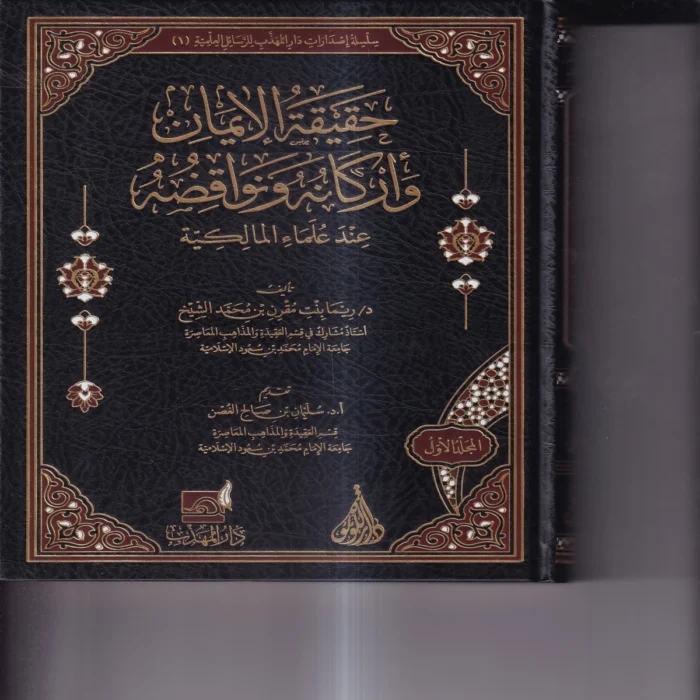 سلسلة إصدارات دار المهذب للرسائل العلمية (١)
حقيقة الإيمان
وأركانه ونواقضه
عند علماء المالكية
تأليف
د/ ريما بنت مقرن بن محمد الشيخ
أستاذ مشارك في قسم العقيدة والمذاهب المعاصرة
جامعة الإمام محمد بن سعود الإسلامية
تقديم
أ.د. سليمان بن صالح الغصن
قسم العقيدة والمذاهب المعاصرة
جامعة الإمام محمد بن سعود الإسلامية
المجلد الأول
دار اللؤلؤة
دار المهذب